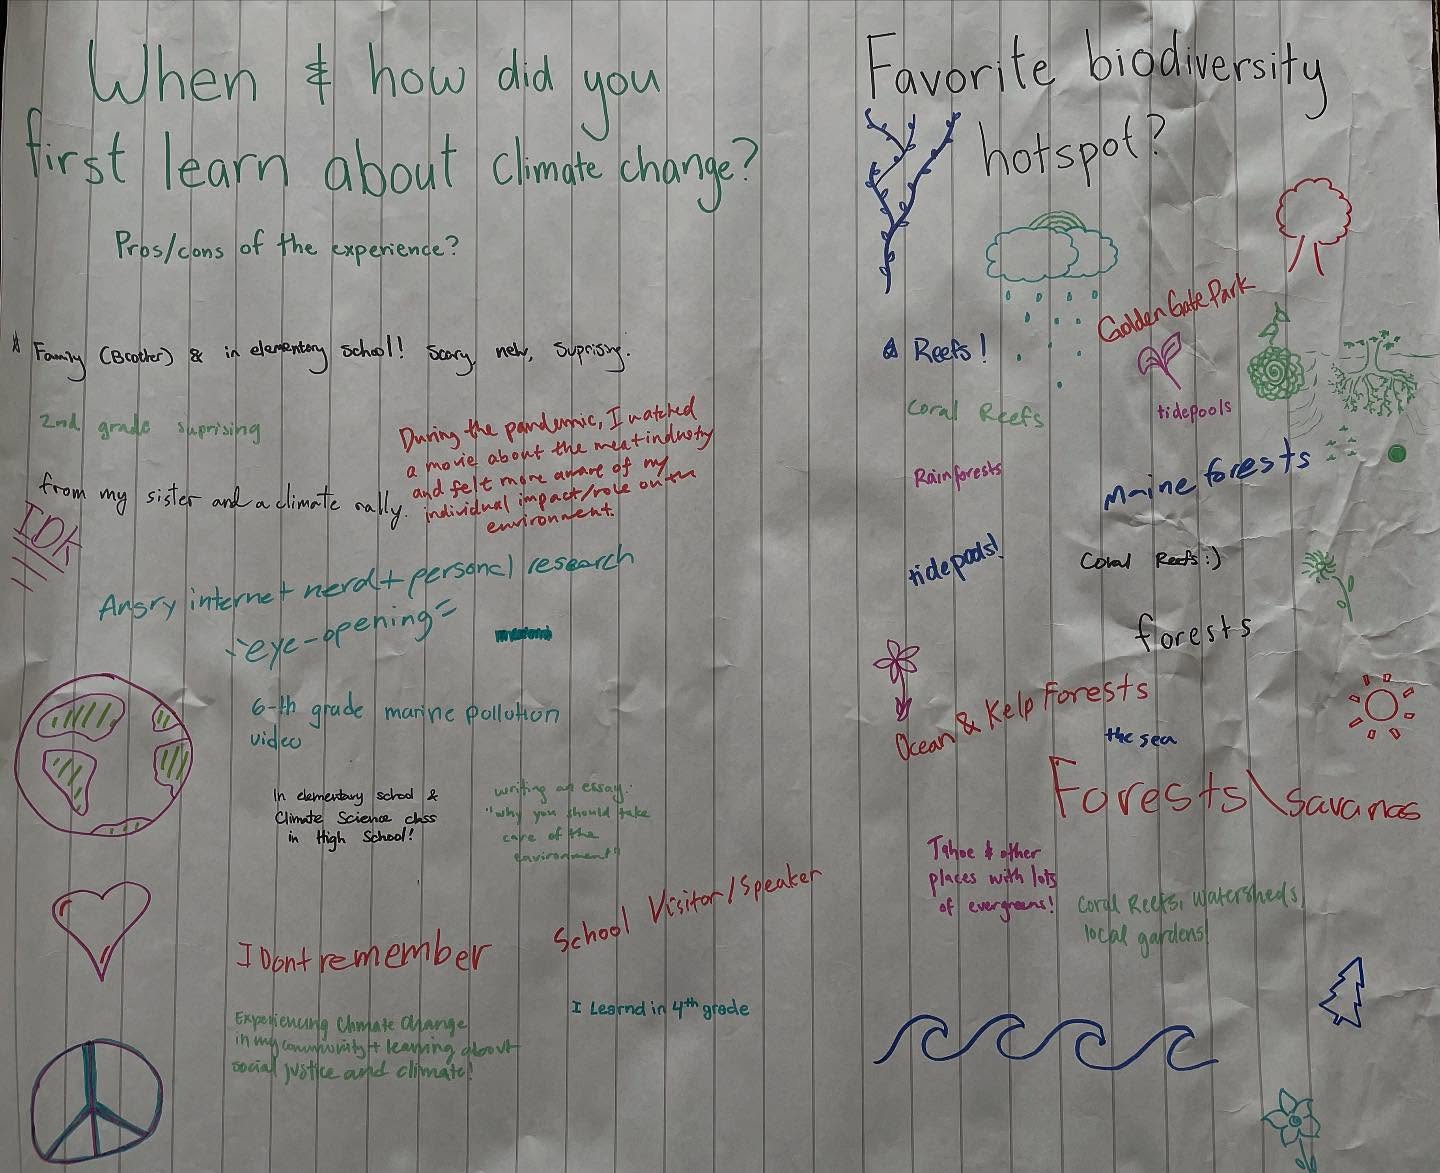 When & how did you
first learn about climate change?
Pros/cons of the experience?
Family (Brother) & in elementary school! Scary, new, Suprising.
2nd grade suprising
During the pandemic, I watched
a movie about the meat industry
and felt more aware of my
individual impact/role on the
environment.
from my sister and a climate rally.
IDK
Angry internet nerd + personal research
-eye-opening=
6-th grade marine pollution
video
In elementary school &
Climate Science class
in High School!
writing an essay:
"why you should take
care of the
environment"
School Visitor/Speaker
I Dont remember
I Learnd in 4th grade
Experiencing Climate Change
in my community + learning about
social justice and climate!
Favorite biodiversity
hotspot?
Golden Gate Park
Reefs!
Coral Reefs
tidepools
Rainforests
Maine forests
tidepools!
Coral Reefs :)
forests
Ocean & Kelp Forests
the sea
Forests\savanas
Tahoe & other
places with lots
of evergreens!
Coral Reefs, Watersheds,
local gardens!